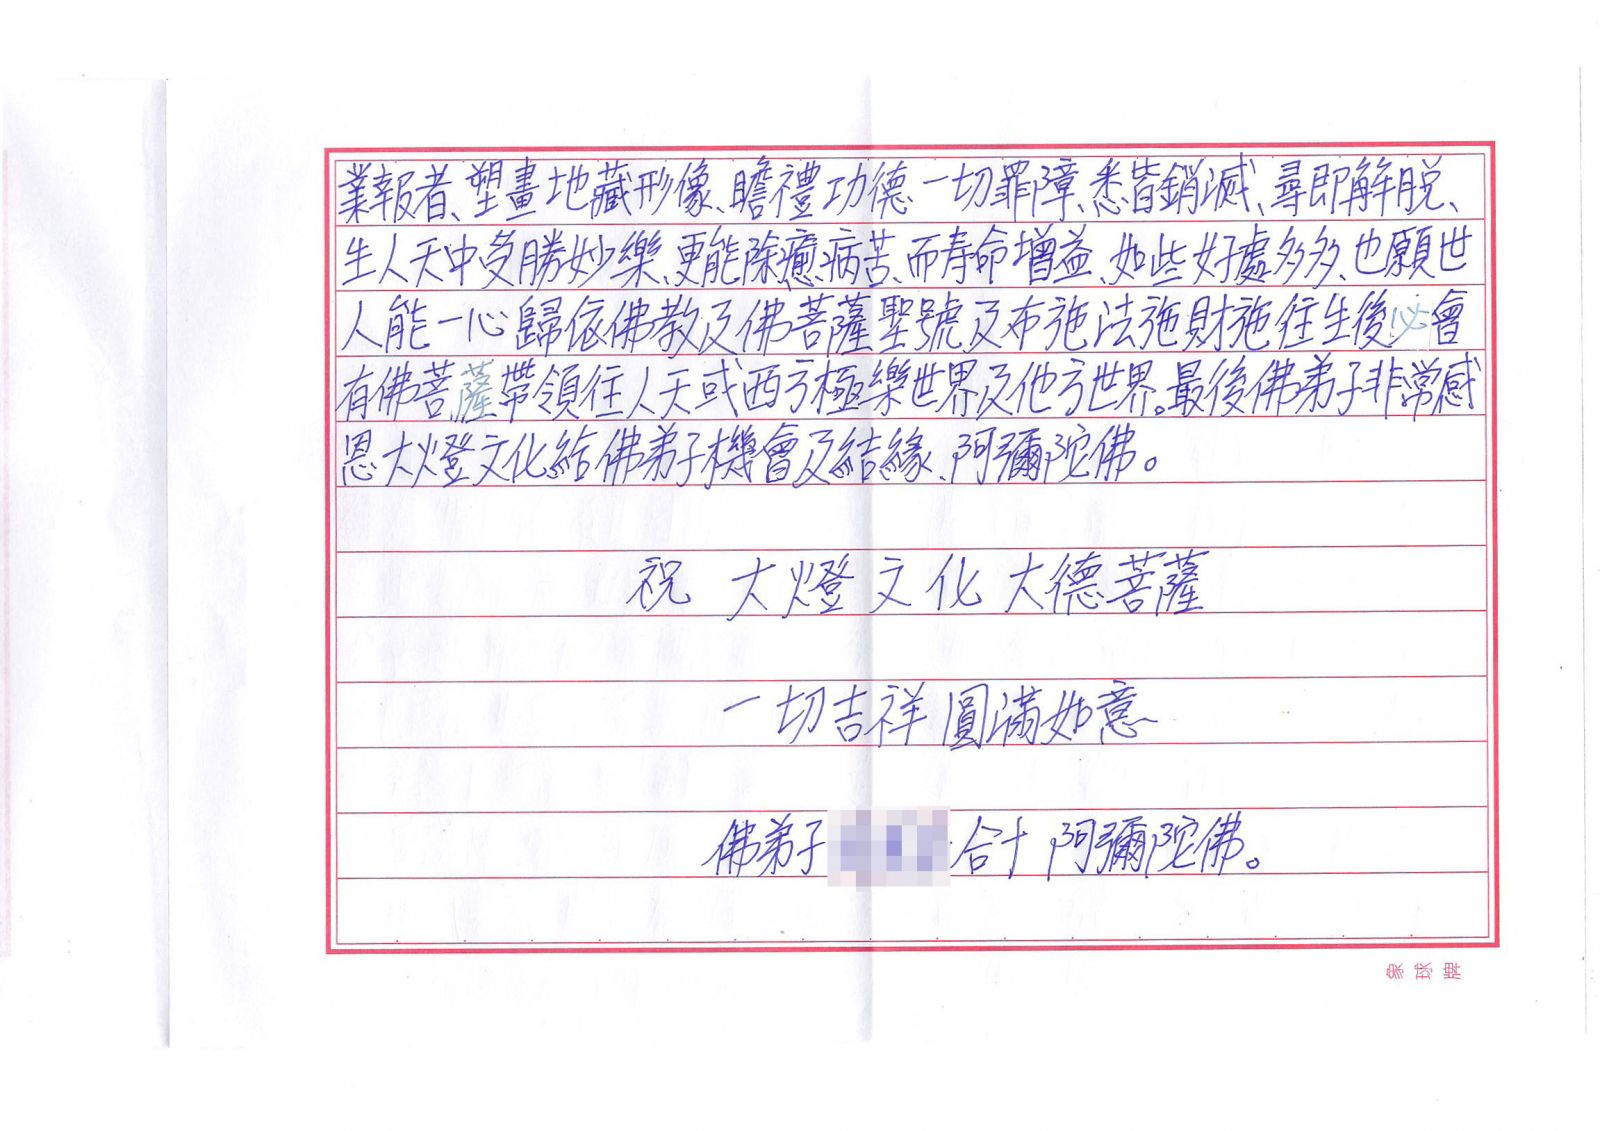 業報者、塑畫地藏形像、瞻禮功德一切罪障、悉皆銷滅、尋即解脫、
生人天中受勝妙樂、更能除癒病苦、而寿命增益、如些好處多多、也願世
人能一心歸依佛教及佛菩薩聖號及布施法施財施往生後必會
有佛菩薩帶領往人天或西方極樂世界及他方世界。最後佛弟子非常感
恩大燈文化給佛弟子機會及結緣、阿彌陀佛。
祝 大燈文化大德菩薩
一切吉祥圓滿如意
佛弟子 合十 阿彌陀佛。
象球牌